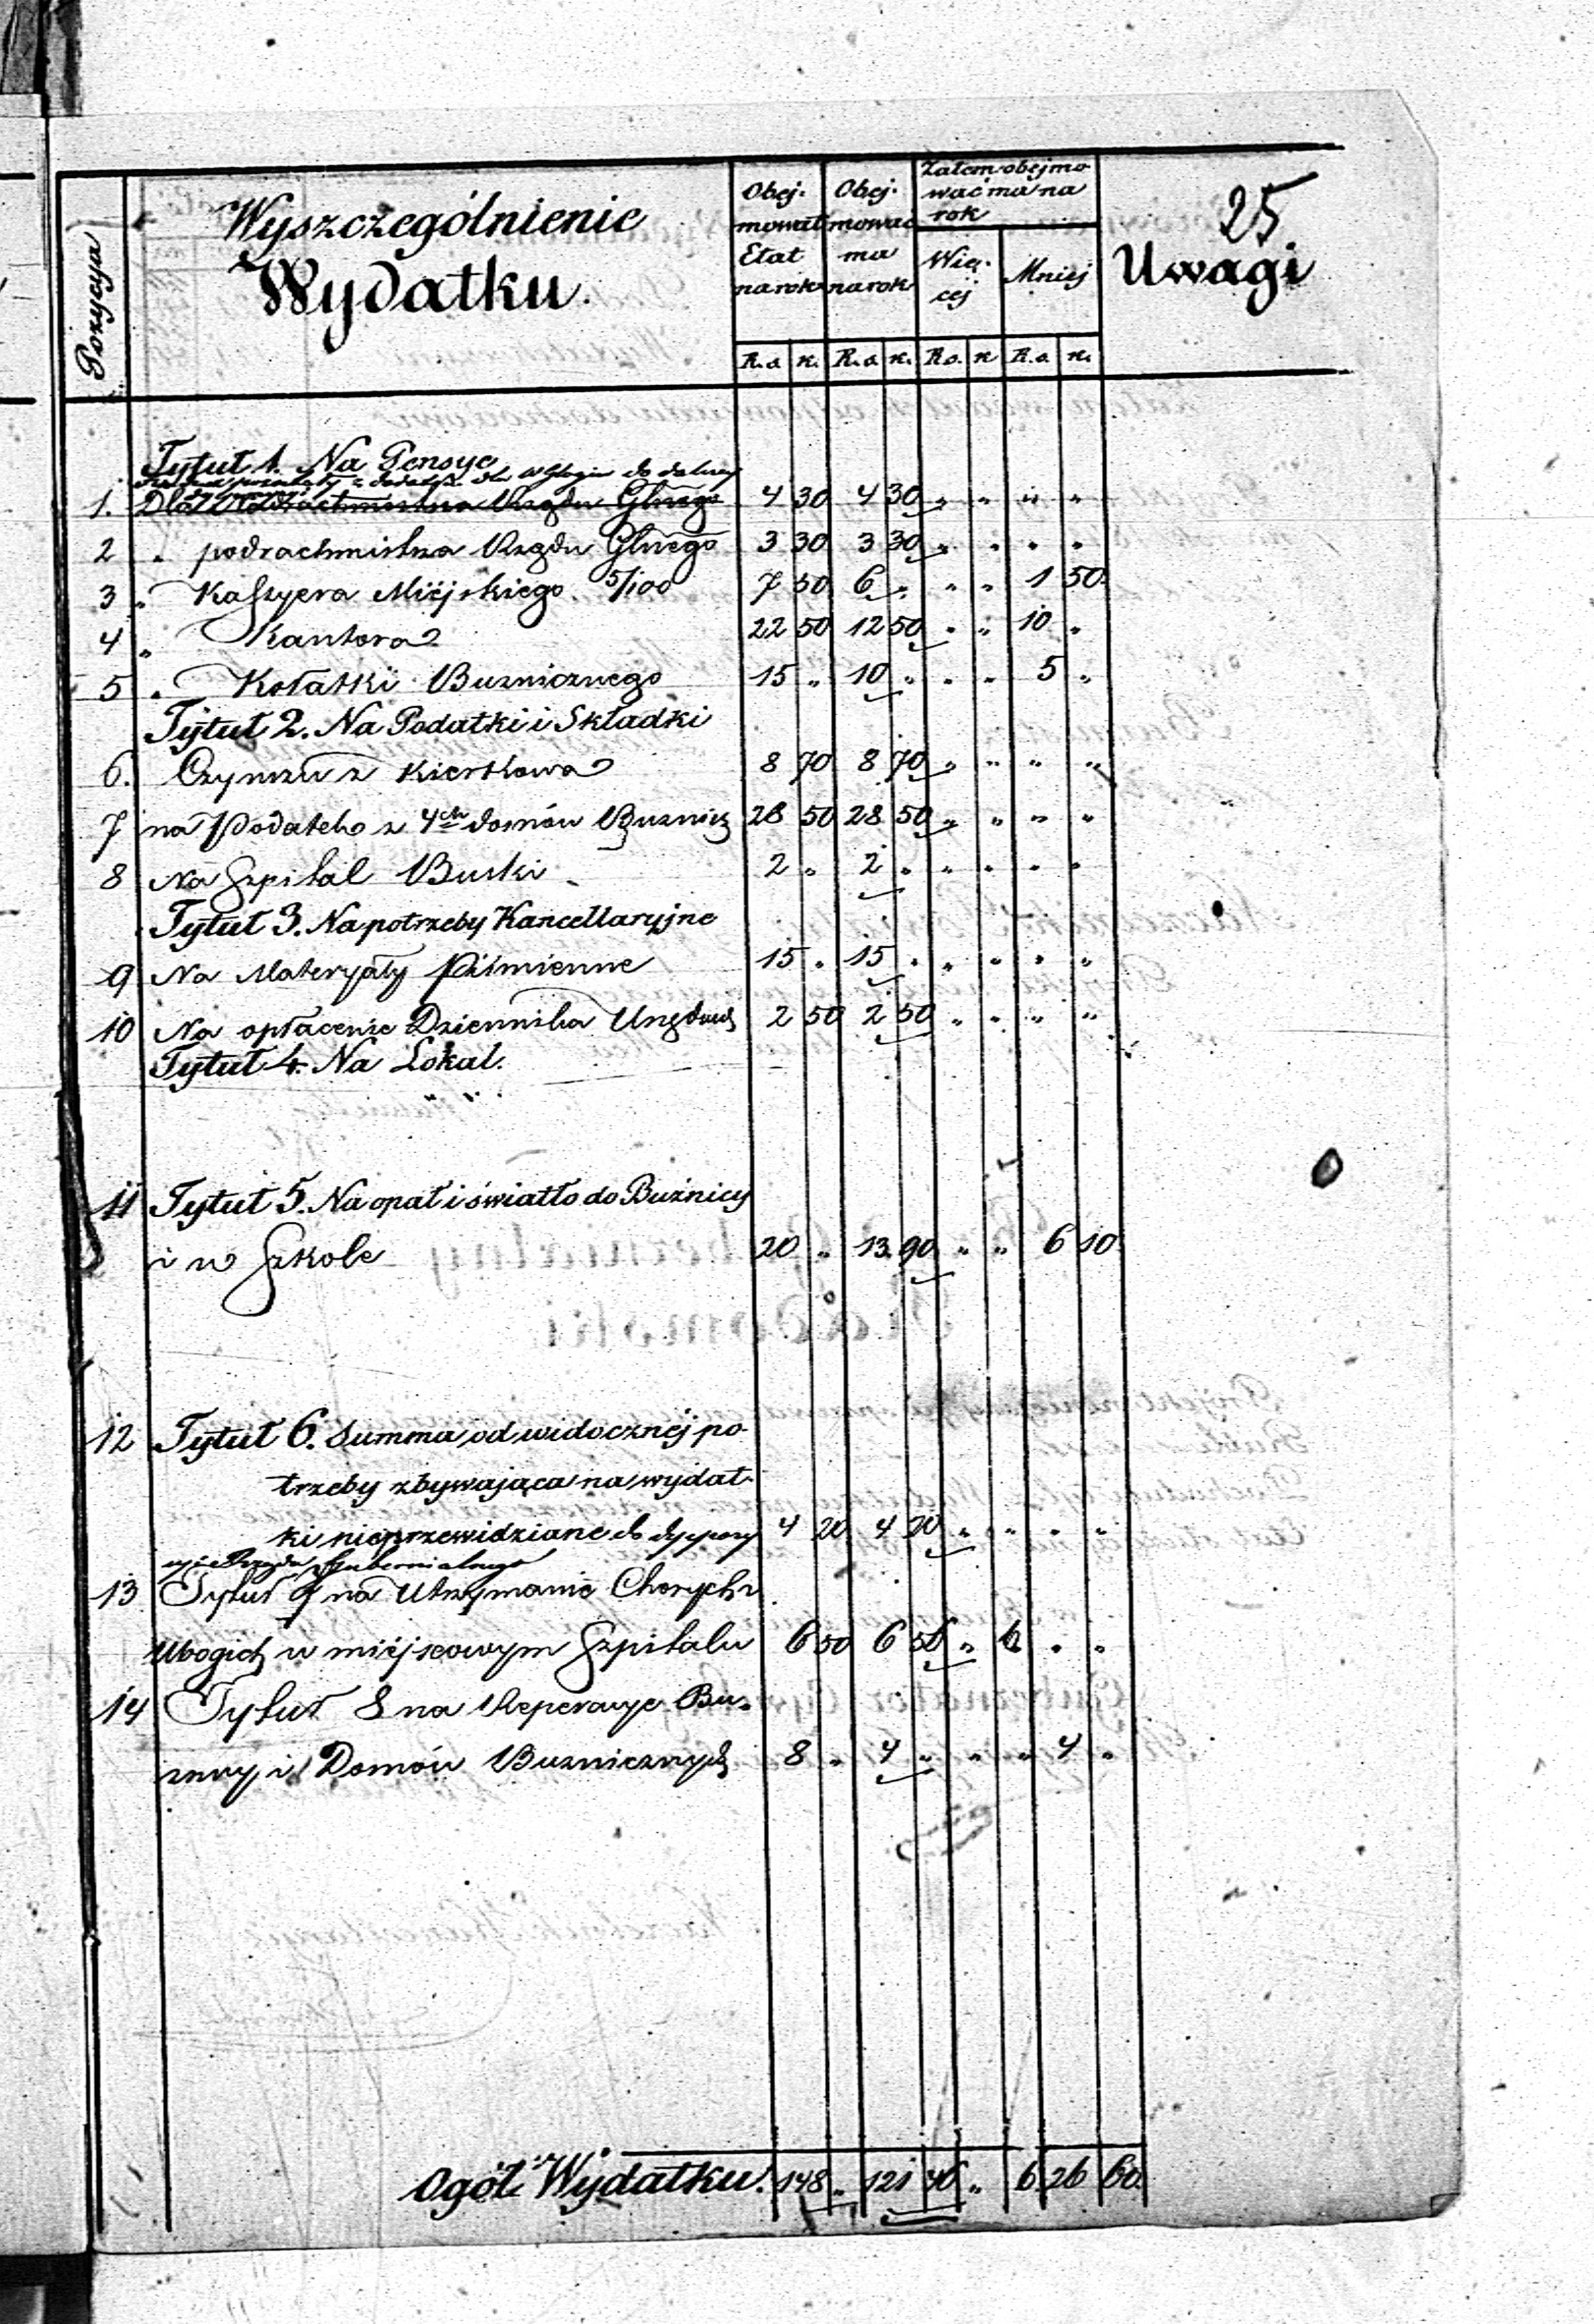 25
Pozycya
Wyszczególnienie
Wydatku.
Obej-
mował
Etat
na rok
Obej-
mować
ma
na rok
Zatem obejmo
wać ma na
rok
Wię-
cej
Mniej
Uwagi
R.s. k. R.s. k. R.s. k R.s. k.
Tytuł 1. Na Pensye
do
1. Dla Rachmistrza Rządu Głnego 4 30 4 30 " " " "
2 " podrachmistrza Rządu Głnego 3 30 3 30 " " " "
3 " Kassyera Miejskiego 5/100 7 50 6 " " " 1 50
4 " Kantora 22 50 12 50 " " 10 "
5 " Kołatki Buznicznego 15 " 10 " " " 5 "
Tytuł 2. Na Podatki i Składki
6. Czynszu z Kierkowa 8 70 8 70 " " " "
7 na Podatek z 4ch domów Buznicz 28 50 28 50 " " " "
8 Na Szpital Buski 2 " 2 " " " " "
Tytuł 3. Na potrzeby Kancellaryjne
9 Na Materyały Piśmienne 15 " 15 " " " " "
10 Na opłacenie Dziennika Urzędow 2 50 2 50 " " " "
Tytuł 4. Na Lokal.
" " "
11 Tytuł 5. Na opał i światło do Buźnicy
i w Szkole 20 " 13 90 " " 6 10
12 Tytuł 6. Summa od widocznéj po
trzeby zbywająca na wydat-
ki nieprzewidziane do dyspozy 4 20 4 20 " " " "
cyi Rządu Gubernialnego
13 Tytuł 7 na Utrzymanie Chorych i
Ubogich w miéjscowym Szpitalu 6 50 6 56 " 6 " "
14 Tytuł 8 na Reperacye Bu-
znicy i Domów Buznicznych 8 " 4 " " " 4 "
Ogół Wydatku. 148 " 121 46 " 6 26 60